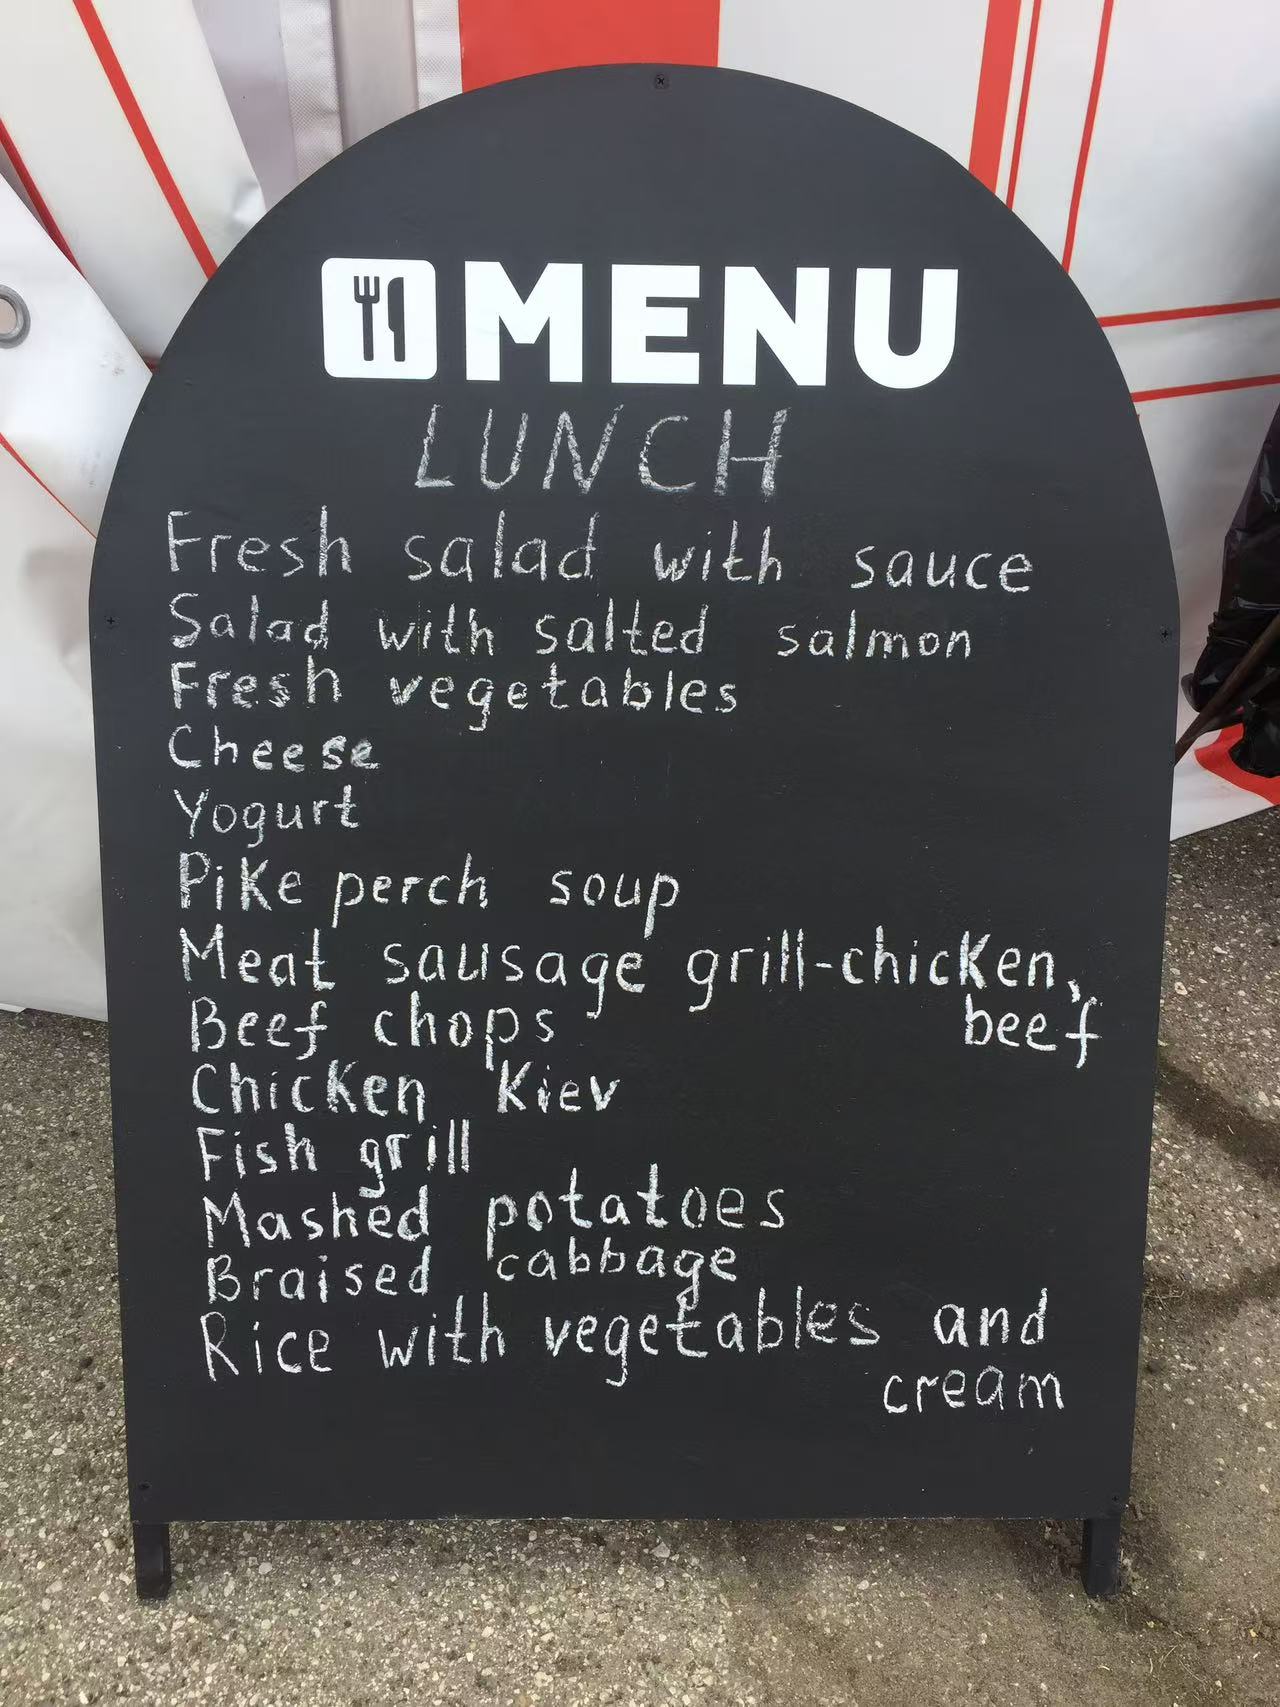 MENU
LUNCH
Fresh salad with sauce
Salad with salted salmon
Fresh vegetables
Cheese
Yogurt
Pike perch soup
Meat sausage grill-chicken,
beef
Beef chops
Chicken Kiev
Fish grill
Mashed potatoes
Braised cabbage
Rice with vegetables and
cream